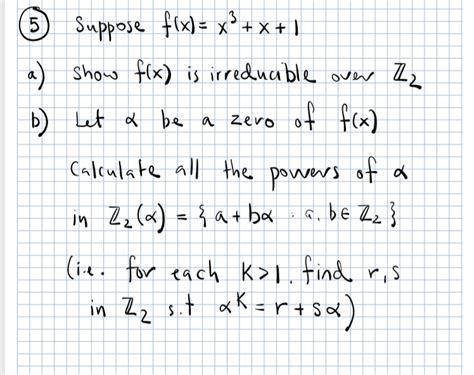 ⑤ Suppose f(x) = x³ + x + 1
a) Show f(x) is irreducible over ℤ₂
b) Let α be a zero of f(x)
Calculate all the powers of α
in ℤ₂(α) = { a + bα : a, b ∈ ℤ₂ }
(i.e. for each K>1. find r, s
in ℤ₂ s.t αᴷ = r + sα)